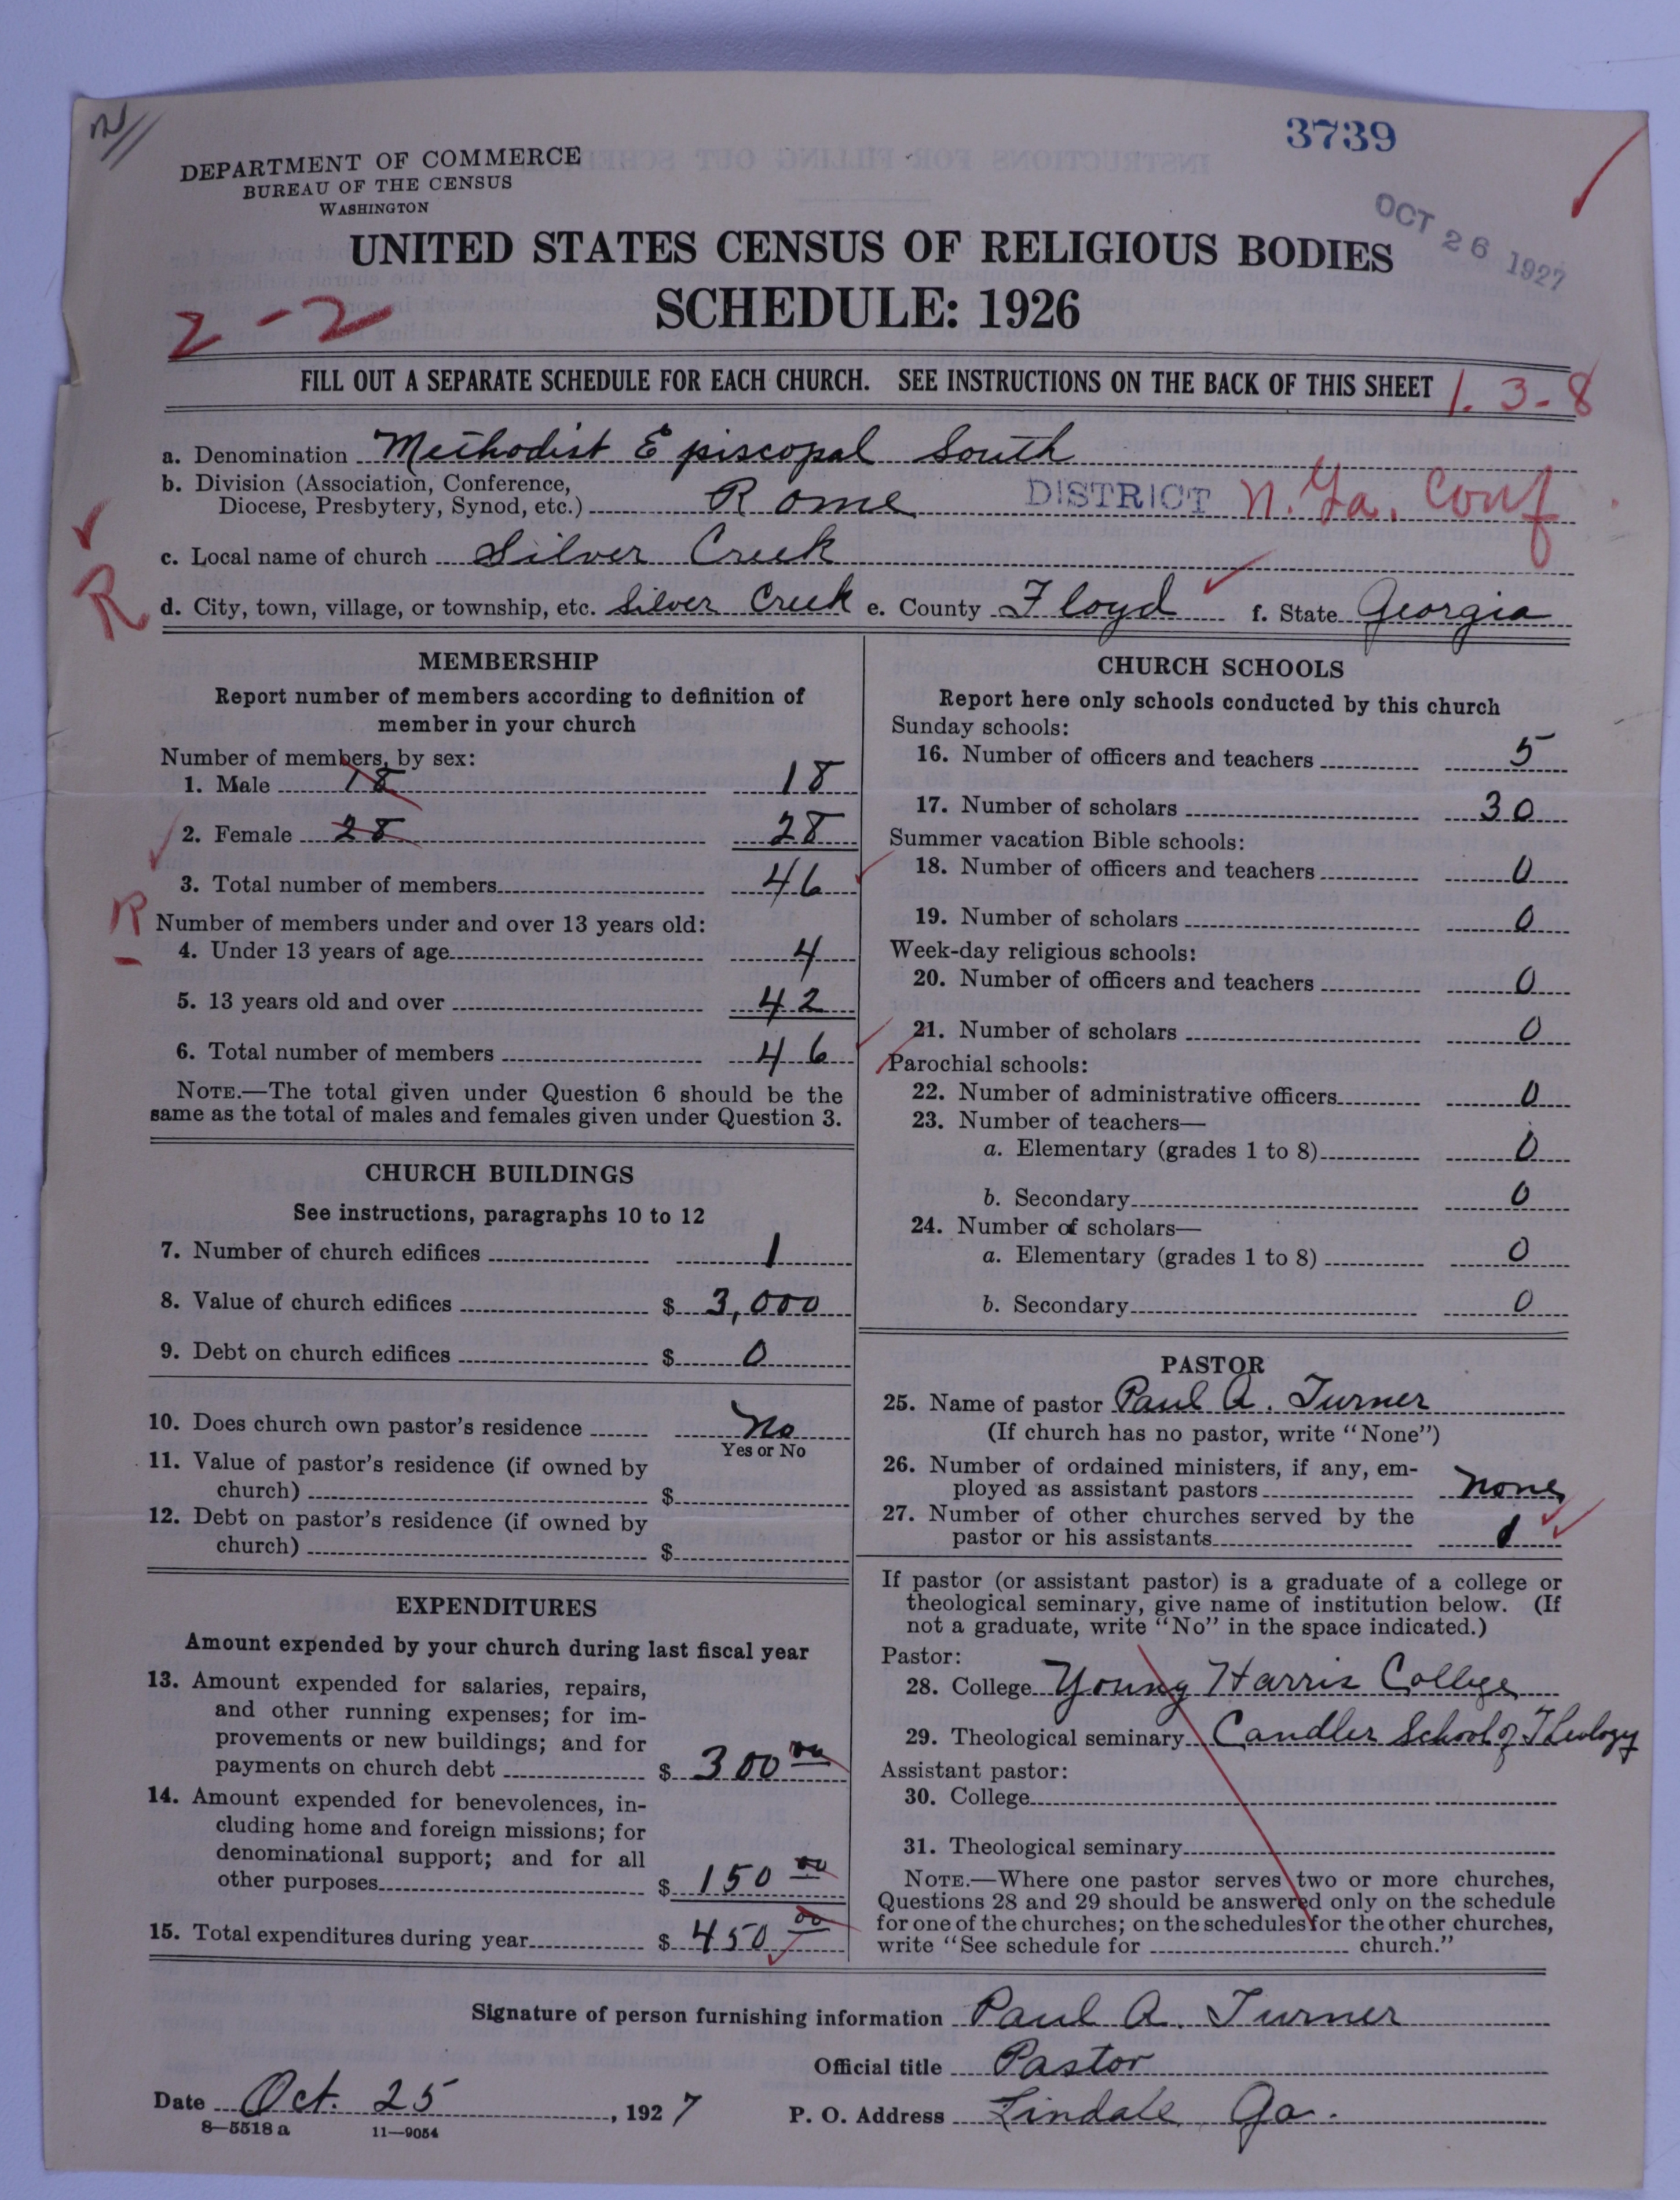 3739
DEPARTMENT OF COMMERCE
BUREAU OF THE CENSUS
WASHINGTON
OCT 26 1927
UNITED STATES CENSUS OF RELIGIOUS BODIES
SCHEDULE: 1926
2-2
FILL OUT A SEPARATE SCHEDULE FOR EACH CHURCH. SEE INSTRUCTIONS ON THE BACK OF THIS SHEET 1.3-8
a. Denomination Methodist Episcopal South
b. Division (Association, Conference,
Diocese, Presbytery, Synod, etc.) Rome DISTRICT N. Ga. Conf
c. Local name of church Silver Creek
R
d. City, town, village, or township, etc. Silver Creek e. County Floyd f. State Georgia
MEMBERSHIP
Report number of members according to definition of
member in your church
Number of members, by sex:
1. Male 18 18
2. Female 28 28
3. Total number of members 46
R
Number of members under and over 13 years old:
4. Under 13 years of age 4
5. 13 years old and over 42
6. Total number of members 46
NOTE.—The total given under Question 6 should be the
same as the total of males and females given under Question 3.
CHURCH BUILDINGS
See instructions, paragraphs 10 to 12
7. Number of church edifices 1
8. Value of church edifices $ 3,000
9. Debt on church edifices $ 0
10. Does church own pastor's residence No
Yes or No
11. Value of pastor's residence (if owned by
church) $
12. Debt on pastor's residence (if owned by
church) $
EXPENDITURES
Amount expended by your church during last fiscal year
13. Amount expended for salaries, repairs,
and other running expenses; for im-
provements or new buildings; and for
payments on church debt $ 300 00
14. Amount expended for benevolences, in-
cluding home and foreign missions; for
denominational support; and for all
other purposes $ 150 00
15. Total expenditures during year $ 450 00
CHURCH SCHOOLS
Report here only schools conducted by this church
Sunday schools:
16. Number of officers and teachers 5
17. Number of scholars 30
Summer vacation Bible schools:
18. Number of officers and teachers 0
19. Number of scholars 0
Week-day religious schools:
20. Number of officers and teachers 0
21. Number of scholars 0
Parochial schools:
22. Number of administrative officers 0
23. Number of teachers—
a. Elementary (grades 1 to 8) 0
b. Secondary 0
24. Number of scholars—
a. Elementary (grades 1 to 8) 0
b. Secondary 0
PASTOR
25. Name of pastor Paul A. Turner
(If church has no pastor, write "None")
26. Number of ordained ministers, if any, em-
ployed as assistant pastors none
27. Number of other churches served by the
pastor or his assistants 1
If pastor (or assistant pastor) is a graduate of a college or
theological seminary, give name of institution below. (If
not a graduate, write "No" in the space indicated.)
Pastor:
28. College Young Harris College
29. Theological seminary Candler School of Theology
Assistant pastor:
30. College
31. Theological seminary
NOTE.—Where one pastor serves two or more churches,
Questions 28 and 29 should be answered only on the schedule
for one of the churches; on the schedules for the other churches,
write "See schedule for church."
Signature of person furnishing information Paul A. Turner
Official title Pastor
Date Oct. 25, 1927 P. O. Address Lindale, Ga.
8—5518 a 11—9054